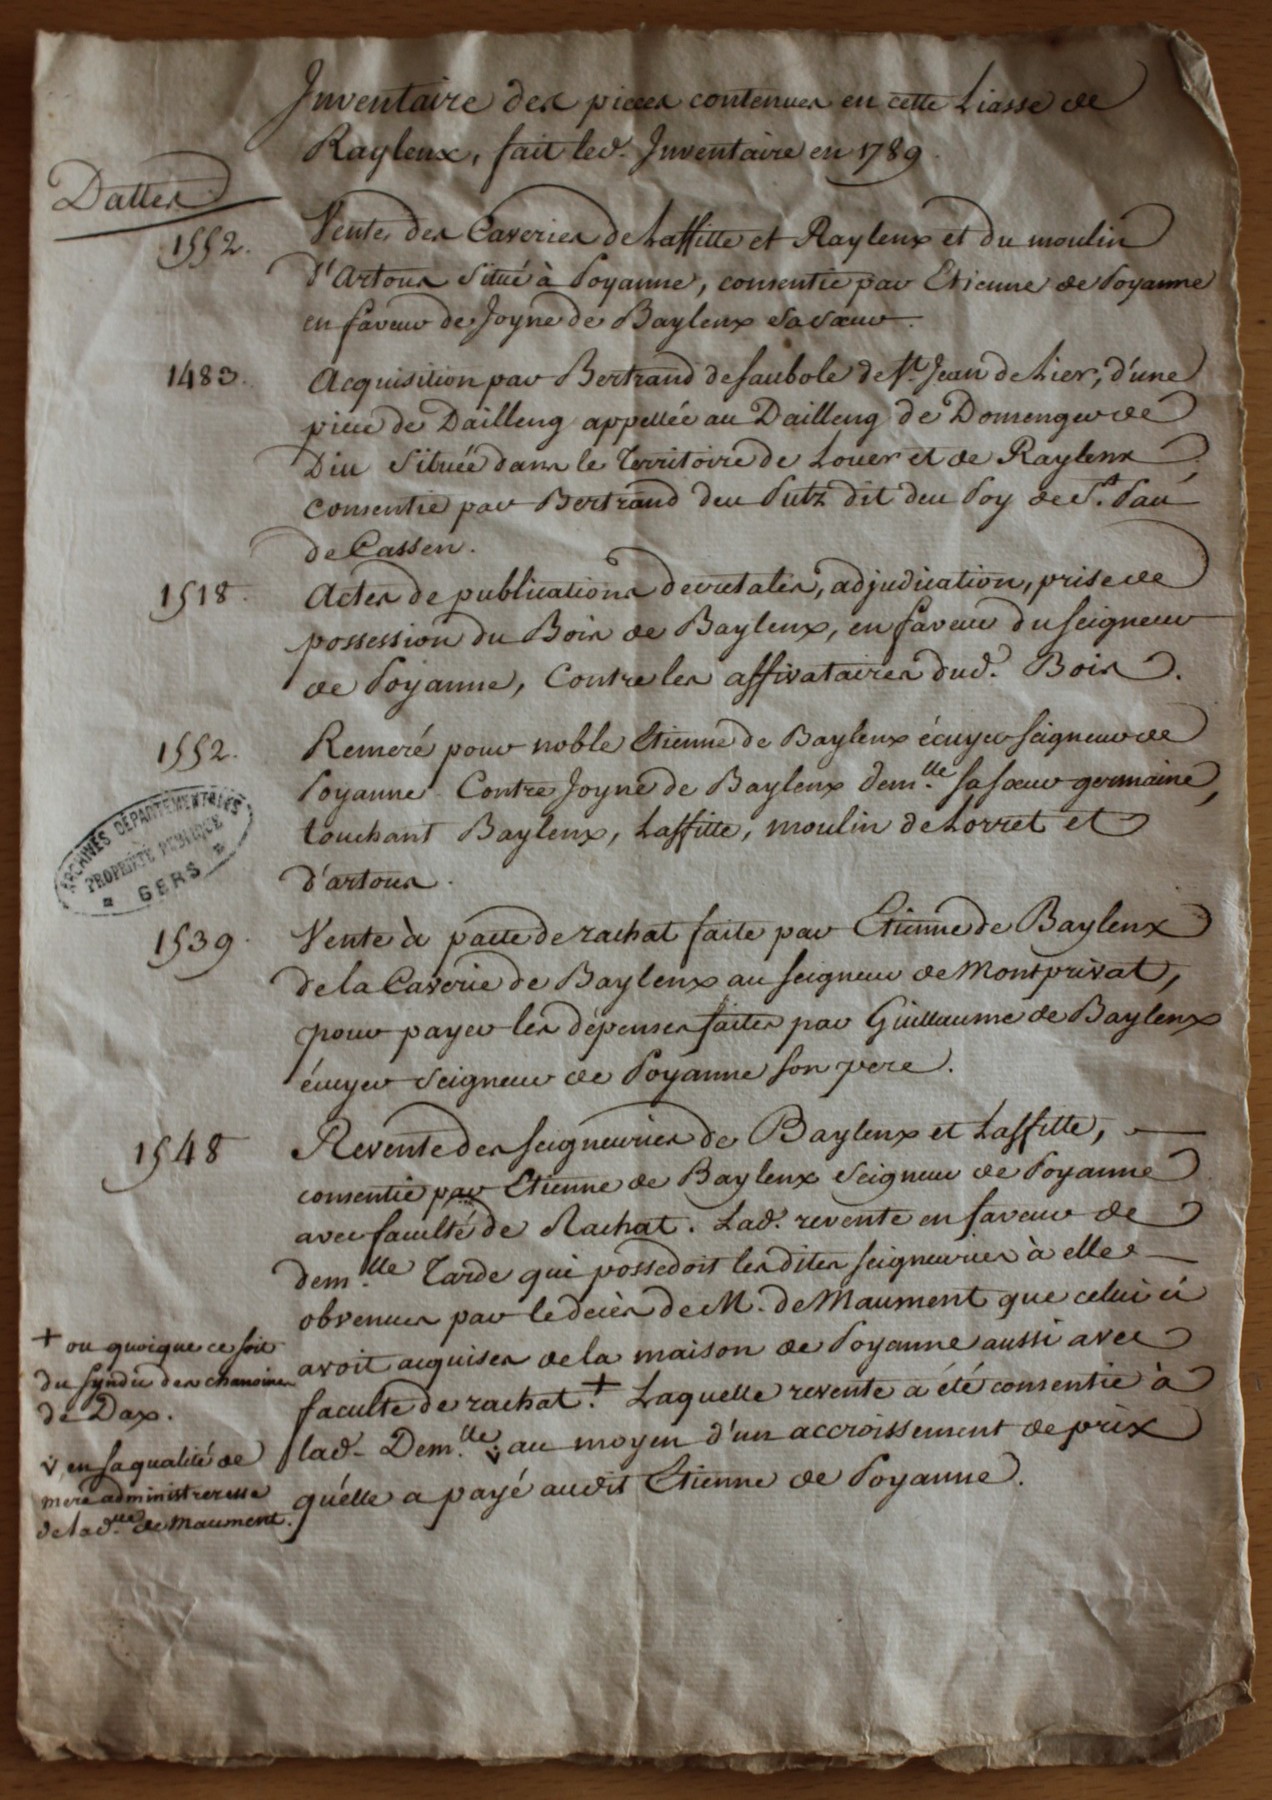 Inventaire des pieces contenues en cette Liasse de
Baylenx, fait led. Inventaire en 1789.
Dattes
1552.
Vente des Caveries de Laffitte et Baylenx et du moulin
d'Artous situé à Poyanne, consentie par Etienne de Poyanne
en faveur de Joyne de Baylenx sa sœur.
1483.
Acquisition par Bertrand de faubole de St. Jean de Lier, d'une
piece de Dailleng appellée au Dailleng de Domenger de
Diu située dans le Territoire de Louer et de Baylenx
consentie par Bertrand deu Putz dit deu Poy de St. Pau
de Cassen.
1518.
Actes de publications decretales, adjudication, prise de
possession du Bois de Baylenx, en faveur du seigneur
de Poyanne, Contre les affivataires dud. Bois.
1552.
Remeré pour noble Etienne de Baylenx écuyer seigneur de
Poyanne Contre Joyne de Baylenx dem.lle sa sœur germaine,
touchant Baylenx, Laffitte, moulin de Lorret et
d'artous.
ARCHIVES DÉPARTEMENTALES
PROPRIÉTÉ PUBLIQUE
GERS
1539.
Vente à pacte de rachat faite par Etienne de Baylenx
de la Caverie de Baylenx au seigneur de Montprivat,
pour payer les dépenses faites par Guillaume de Baylenx
écuyer seigneur de Poyanne son pere.
1548
Revente des seigneuries de Baylenx et Laffitte,
consentie par Etienne de Baylenx seigneur de Poyanne
avec faculté de Rachat. Lad. revente en faveur de
dem.lle Tarde qui possedoit les dites seigneuries à elle
obvenues par le decès de M. de Maument que celui ci
avoit acquises de la maison de Poyanne aussi avec
faculte de rachat. + Laquelle revente a été consentie à
lad. Dem.lle v au moyen d'un accroissement de prix
qu'elle a payé audit Etienne de Poyanne.
+ ou quoique ce soit
du syndic des chanoines
de Dax.
v en sa qualité de
mere administreresse
de lad.lle de Maument.